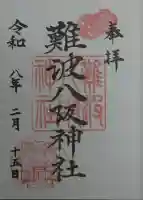 奉拝
難波八阪神社
令和八年二月十五日